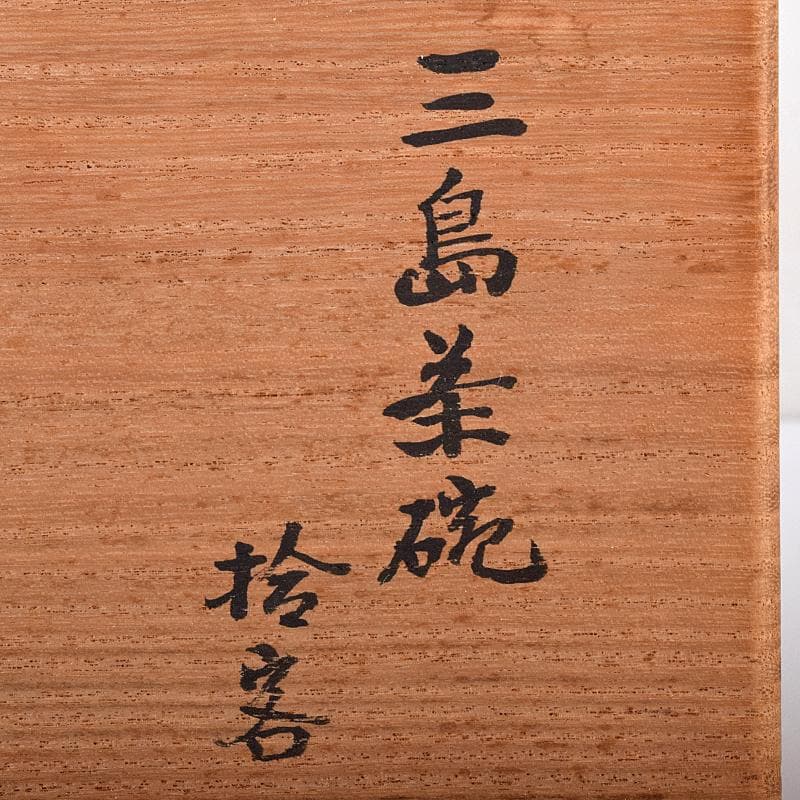 三島茶碗
拾客